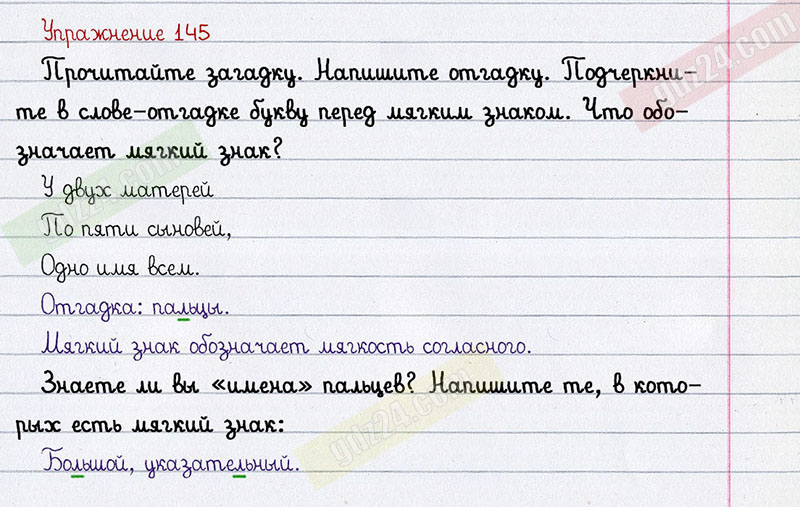 Упражнение 145
Прочитайте загадку. Напишите отгадку. Подчеркни-
те в слове-отгадке букву перед мягким знаком. Что обо-
значает мягкий знак?
У двух матерей
По пяти сыновей,
Одно имя всем.
Отгадка: пальцы.
Мягкий знак обозначает мягкость согласного.
Знаете ли вы «имена» пальцев? Напишите те, в кото-
рых есть мягкий знак:
Большой, указательный.
gdz24.com
gdz24.com
gdz24.com